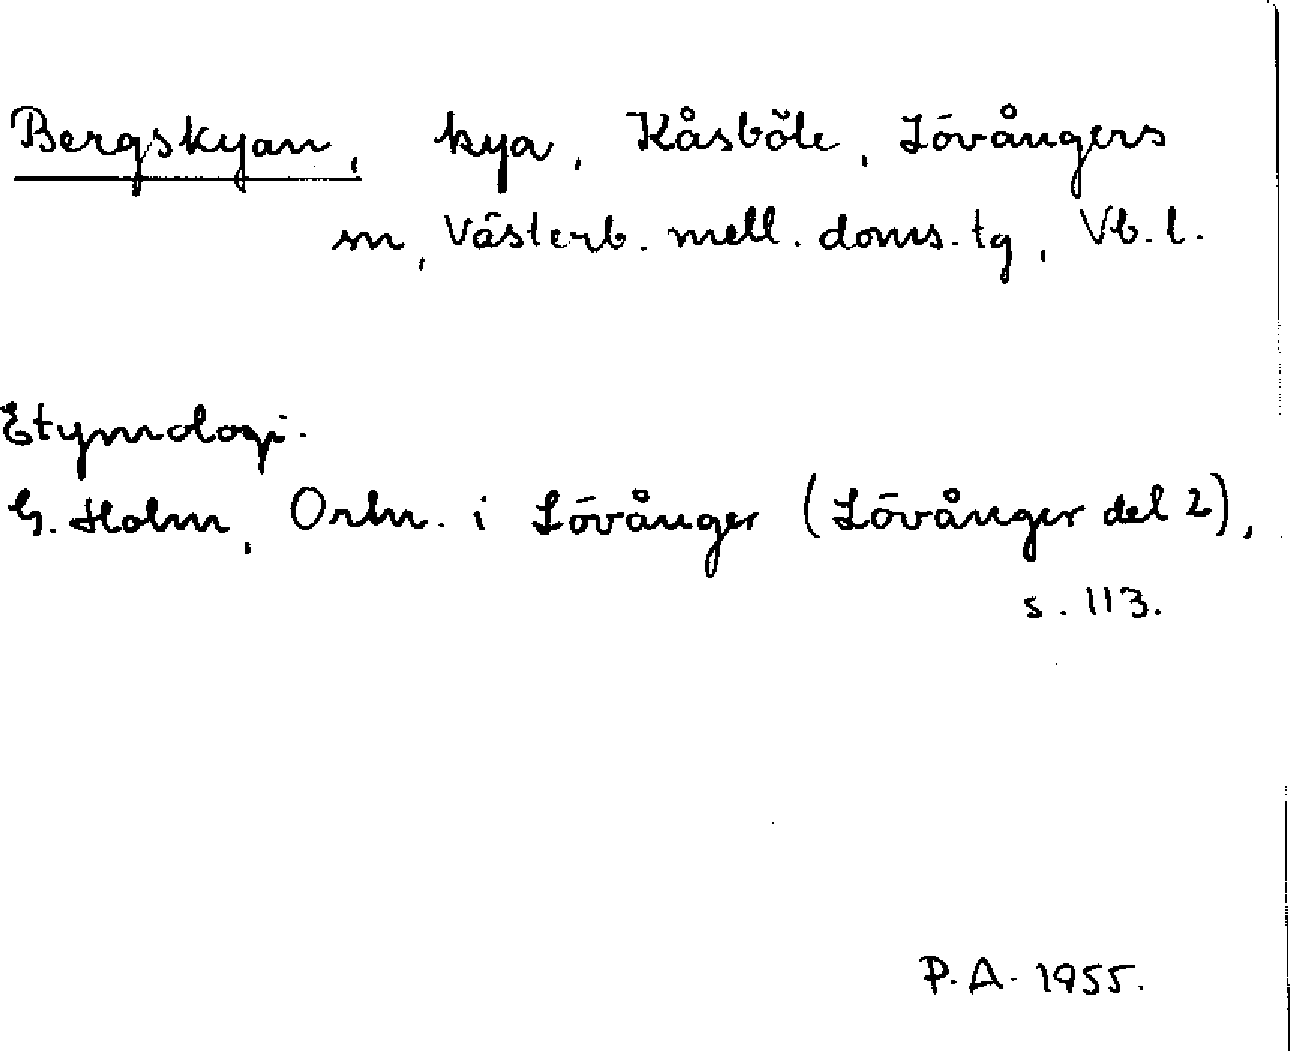 Bergskyan, kya, Kåsböle, Lövångers
sn, Västerb. mell. doms. tg, Vb. l.
Etymologi.
G. Holm, Ortn. i Lövånger (Lövånger del 2),
s. 113.
P. A. 1955.